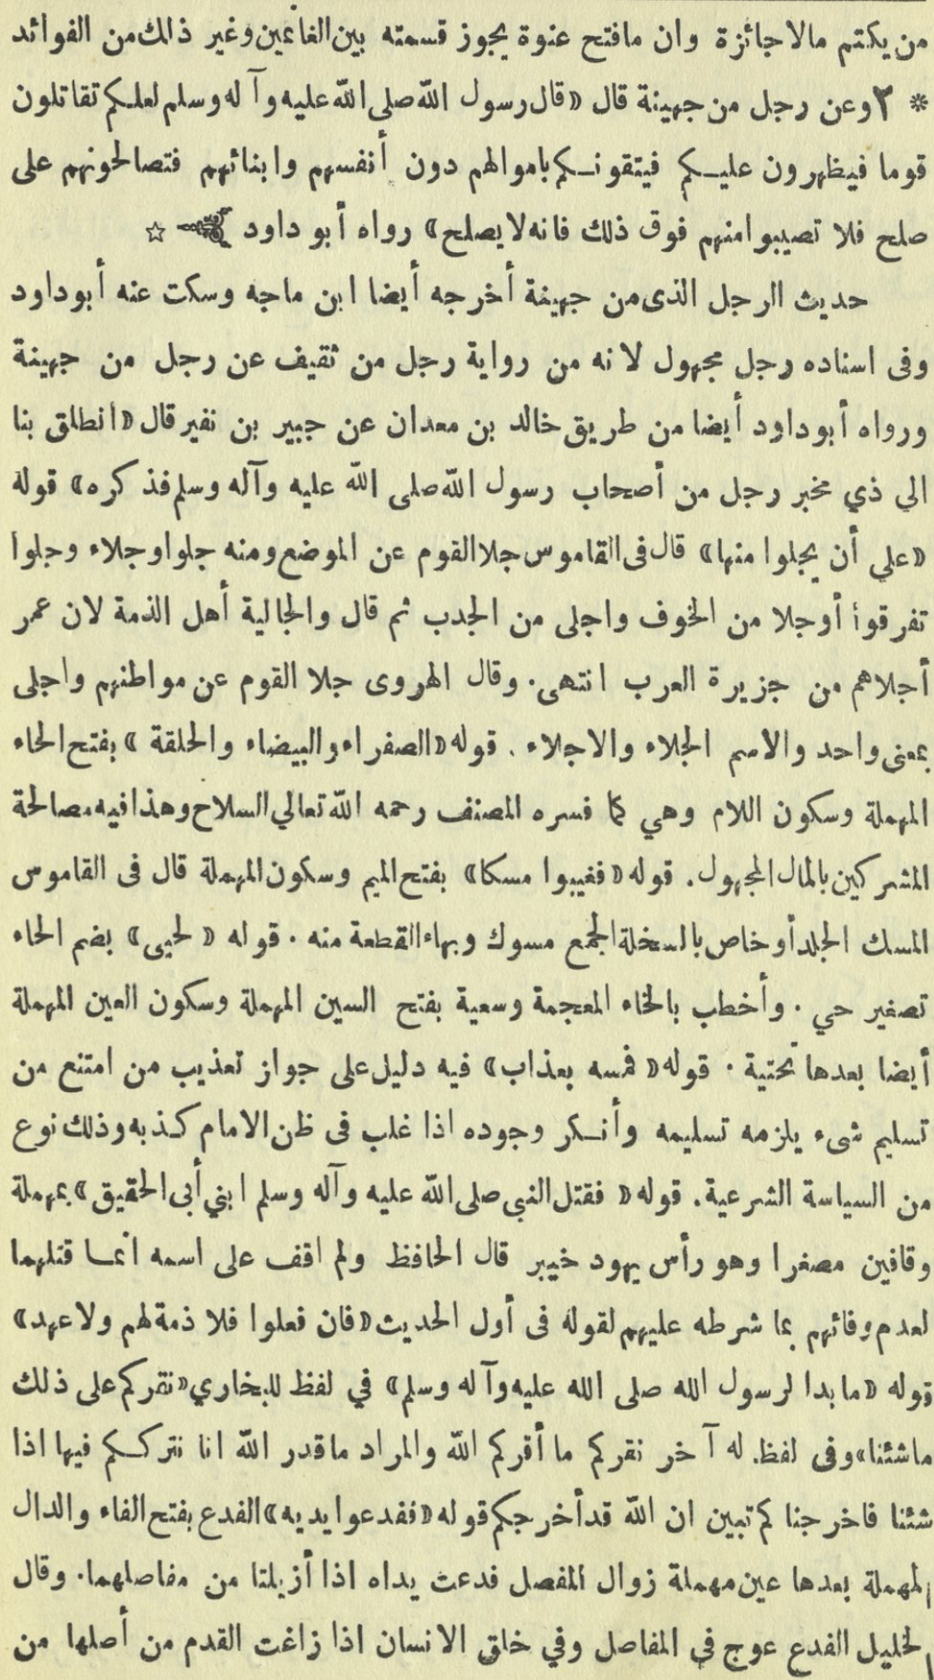 من يكتم مالا جائزة وان مافتح عنوة يجوز قسمته بين الغانمين وغير ذلك من الفوائد
* ٢ وعن رجل من جهينة قال «قال رسول الله صلى الله عليه وآله وسلم لعلكم تقاتلون
قوما فيظهرون عليكم فيتقونكم باموالهم دون أنفسهم وابنائهم فتصالحونهم على
صلح فلا تصيبوا منهم فوق ذلك فانه لا يصلح» رواه أبو داود ☆
حديث الرجل الذى من جهينة أخرجه أيضا ابن ماجه وسكت عنه أبو داود
وفى اسناده رجل مجهول لانه من رواية رجل من ثقيف عن رجل من جهينة
ورواه أبو داود أيضا من طريق خالد بن معدان عن جبير بن نفير قال «انطلق بنا
الي ذي مخبر رجل من أصحاب رسول الله صلى الله عليه وآله وسلم فذكره» قوله
«علي أن يجلوا منها» قال فى القاموس جلا القوم عن الموضع ومنه جلوا وجلاء وجلوا
تفرقوا أوجلا من الخوف واجلى من الجدب ثم قال والجالية أهل الذمة لان عمر
أجلاهم من جزيرة العرب انتهى. وقال الهروى جلا القوم عن مواطنهم واجلى
بمعنى واحد والاسم الجلاء والاجلاء. قوله «الصفراء والبيضاء والحلقة» بفتح الحاء
المهملة وسكون اللام وهي كما فسره المصنف رحمه الله تعالي السلاح وهذا فيه مصالحة
المشركين بالمال المجهول. قوله «فغيبوا مسكا» بفتح الميم وسكون المهملة قال فى القاموس
المسك الجلد أو خاص بالسخلة الجمع مسوك وبهاء القطعة منه. قوله «لحيى» بضم الحاء
تصغير حي. وأخطب بالخاء المعجمة وسعية بفتح السين المهملة وسكون العين المهملة
أيضا بعدها تحتية. قوله «فمسه بعذاب» فيه دليل على جواز تعذيب من امتنع من
تسليم شىء يلزمه تسليمه وأنكر وجوده اذا غلب فى ظن الامام كذبه وذلك نوع
من السياسة الشرعية. قوله «فقتل النبى صلى الله عليه وآله وسلم ابني أبى الحقيق» بمهملة
وقافين مصغرا وهو رأس يهود خيبر قال الحافظ ولم اقف على اسمه انما قتلهما
لعدم وفائهم بما شرطه عليهم لقوله فى أول الحديث «فان فعلوا فلا ذمة لهم ولا عهد»
قوله «ما بدا لرسول الله صلى الله عليه وآله وسلم» في لفظ للبخاري «نقركم على ذلك
ما شئنا» وفى لفظ. له آخر نقركم ما أقركم الله والمراد ما قدر الله انا نترككم فيها اذا
شئنا فاخرجنا كم تبين ان الله قد أخرجكم قوله «ففدعوا يديه» الفدع بفتح الفاء والدال
المهملة بعدها عين مهملة زوال المفصل فدعت يداه اذا أزيلتا من مفاصلهما. وقال
الخليل الفدع عوج في المفاصل وفي خلق الانسان اذا زاغت القدم من أصلها من